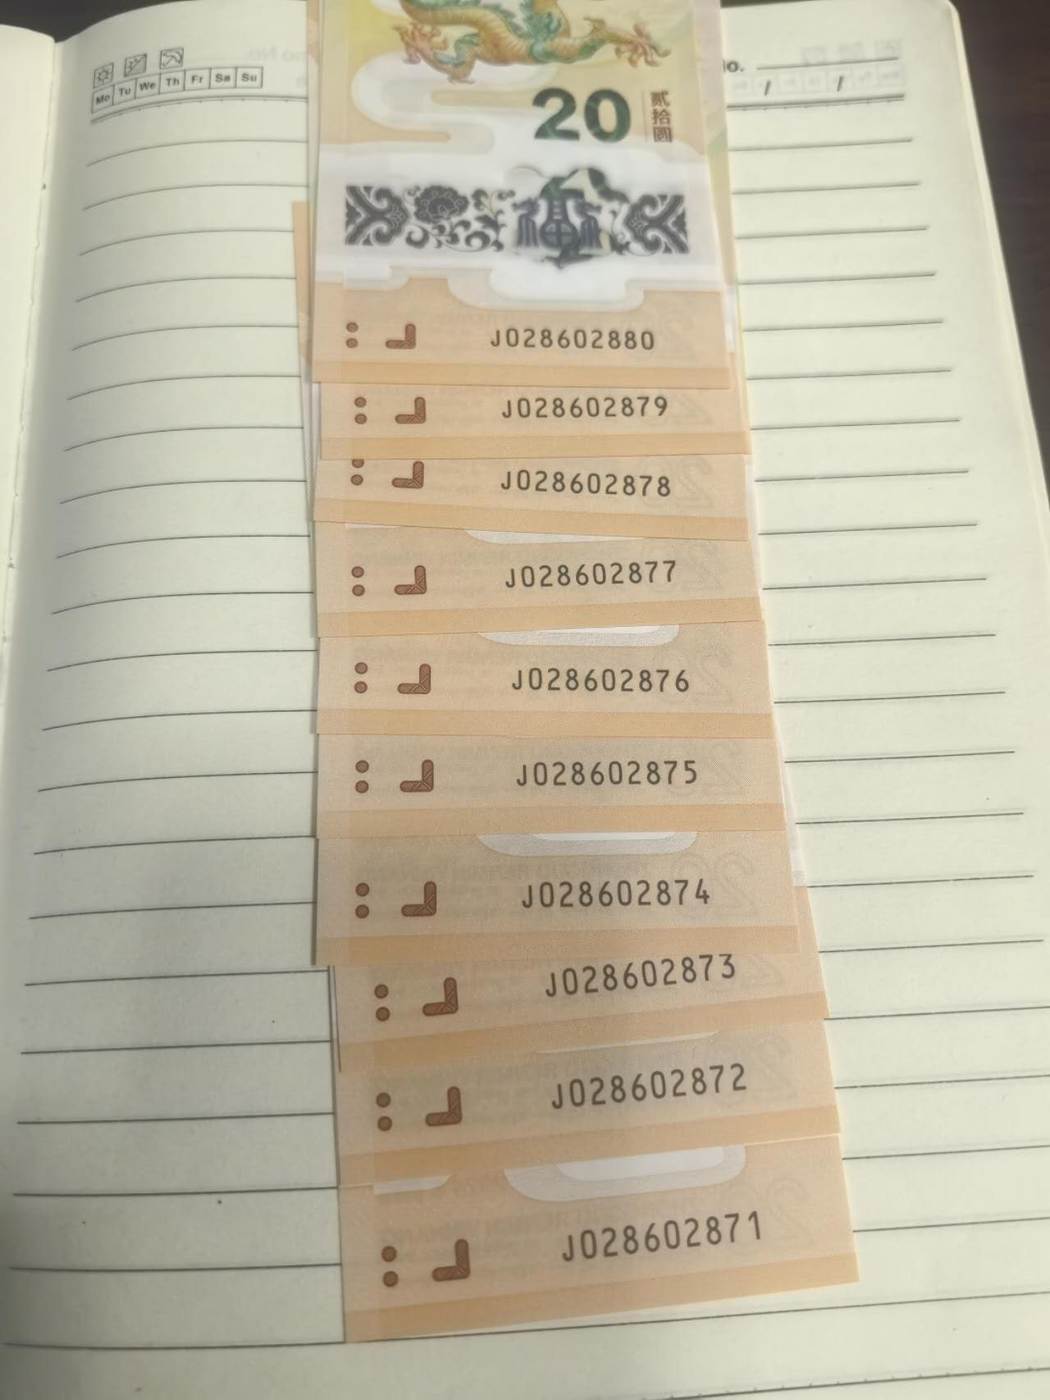 Mo Tu We Th Fr Sa Su
o.
/ /
20 贰拾圆
福
J028602880
J028602879
J028602878
J028602877
J028602876
J028602875
J028602874
J028602873
J028602872
J028602871